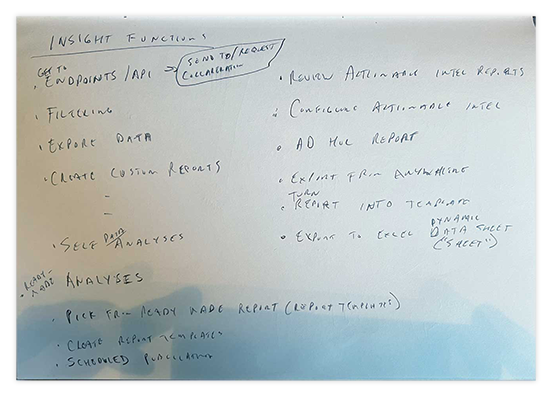 INSIGHT FUNCTIONS
GET TO
• ENDPOINTS/API → SEND TO/REQUEST
COLLABORATION
• FILTERING
• EXPORT DATA
• CREATE CUSTOM REPORTS
-
-
• SELF ANALYSES
• READY-MADE ANALYSES
• PICK FROM READY MADE REPORT (REPORT TEMPLATES)
• CREATE REPORT TEMPLATES
• SCHEDULED PUBLICATION
• REVIEW ACTIONABLE INTEL REPORTS
• CONFIGURE ACTIONABLE INTEL
• AD HOC REPORT
• EXPORT FROM ANYWHERE
TURN
• REPORT INTO TEMPLATE
DYNAMIC
• EXPORT TO EXCEL DATA SHEET
("SHEET")